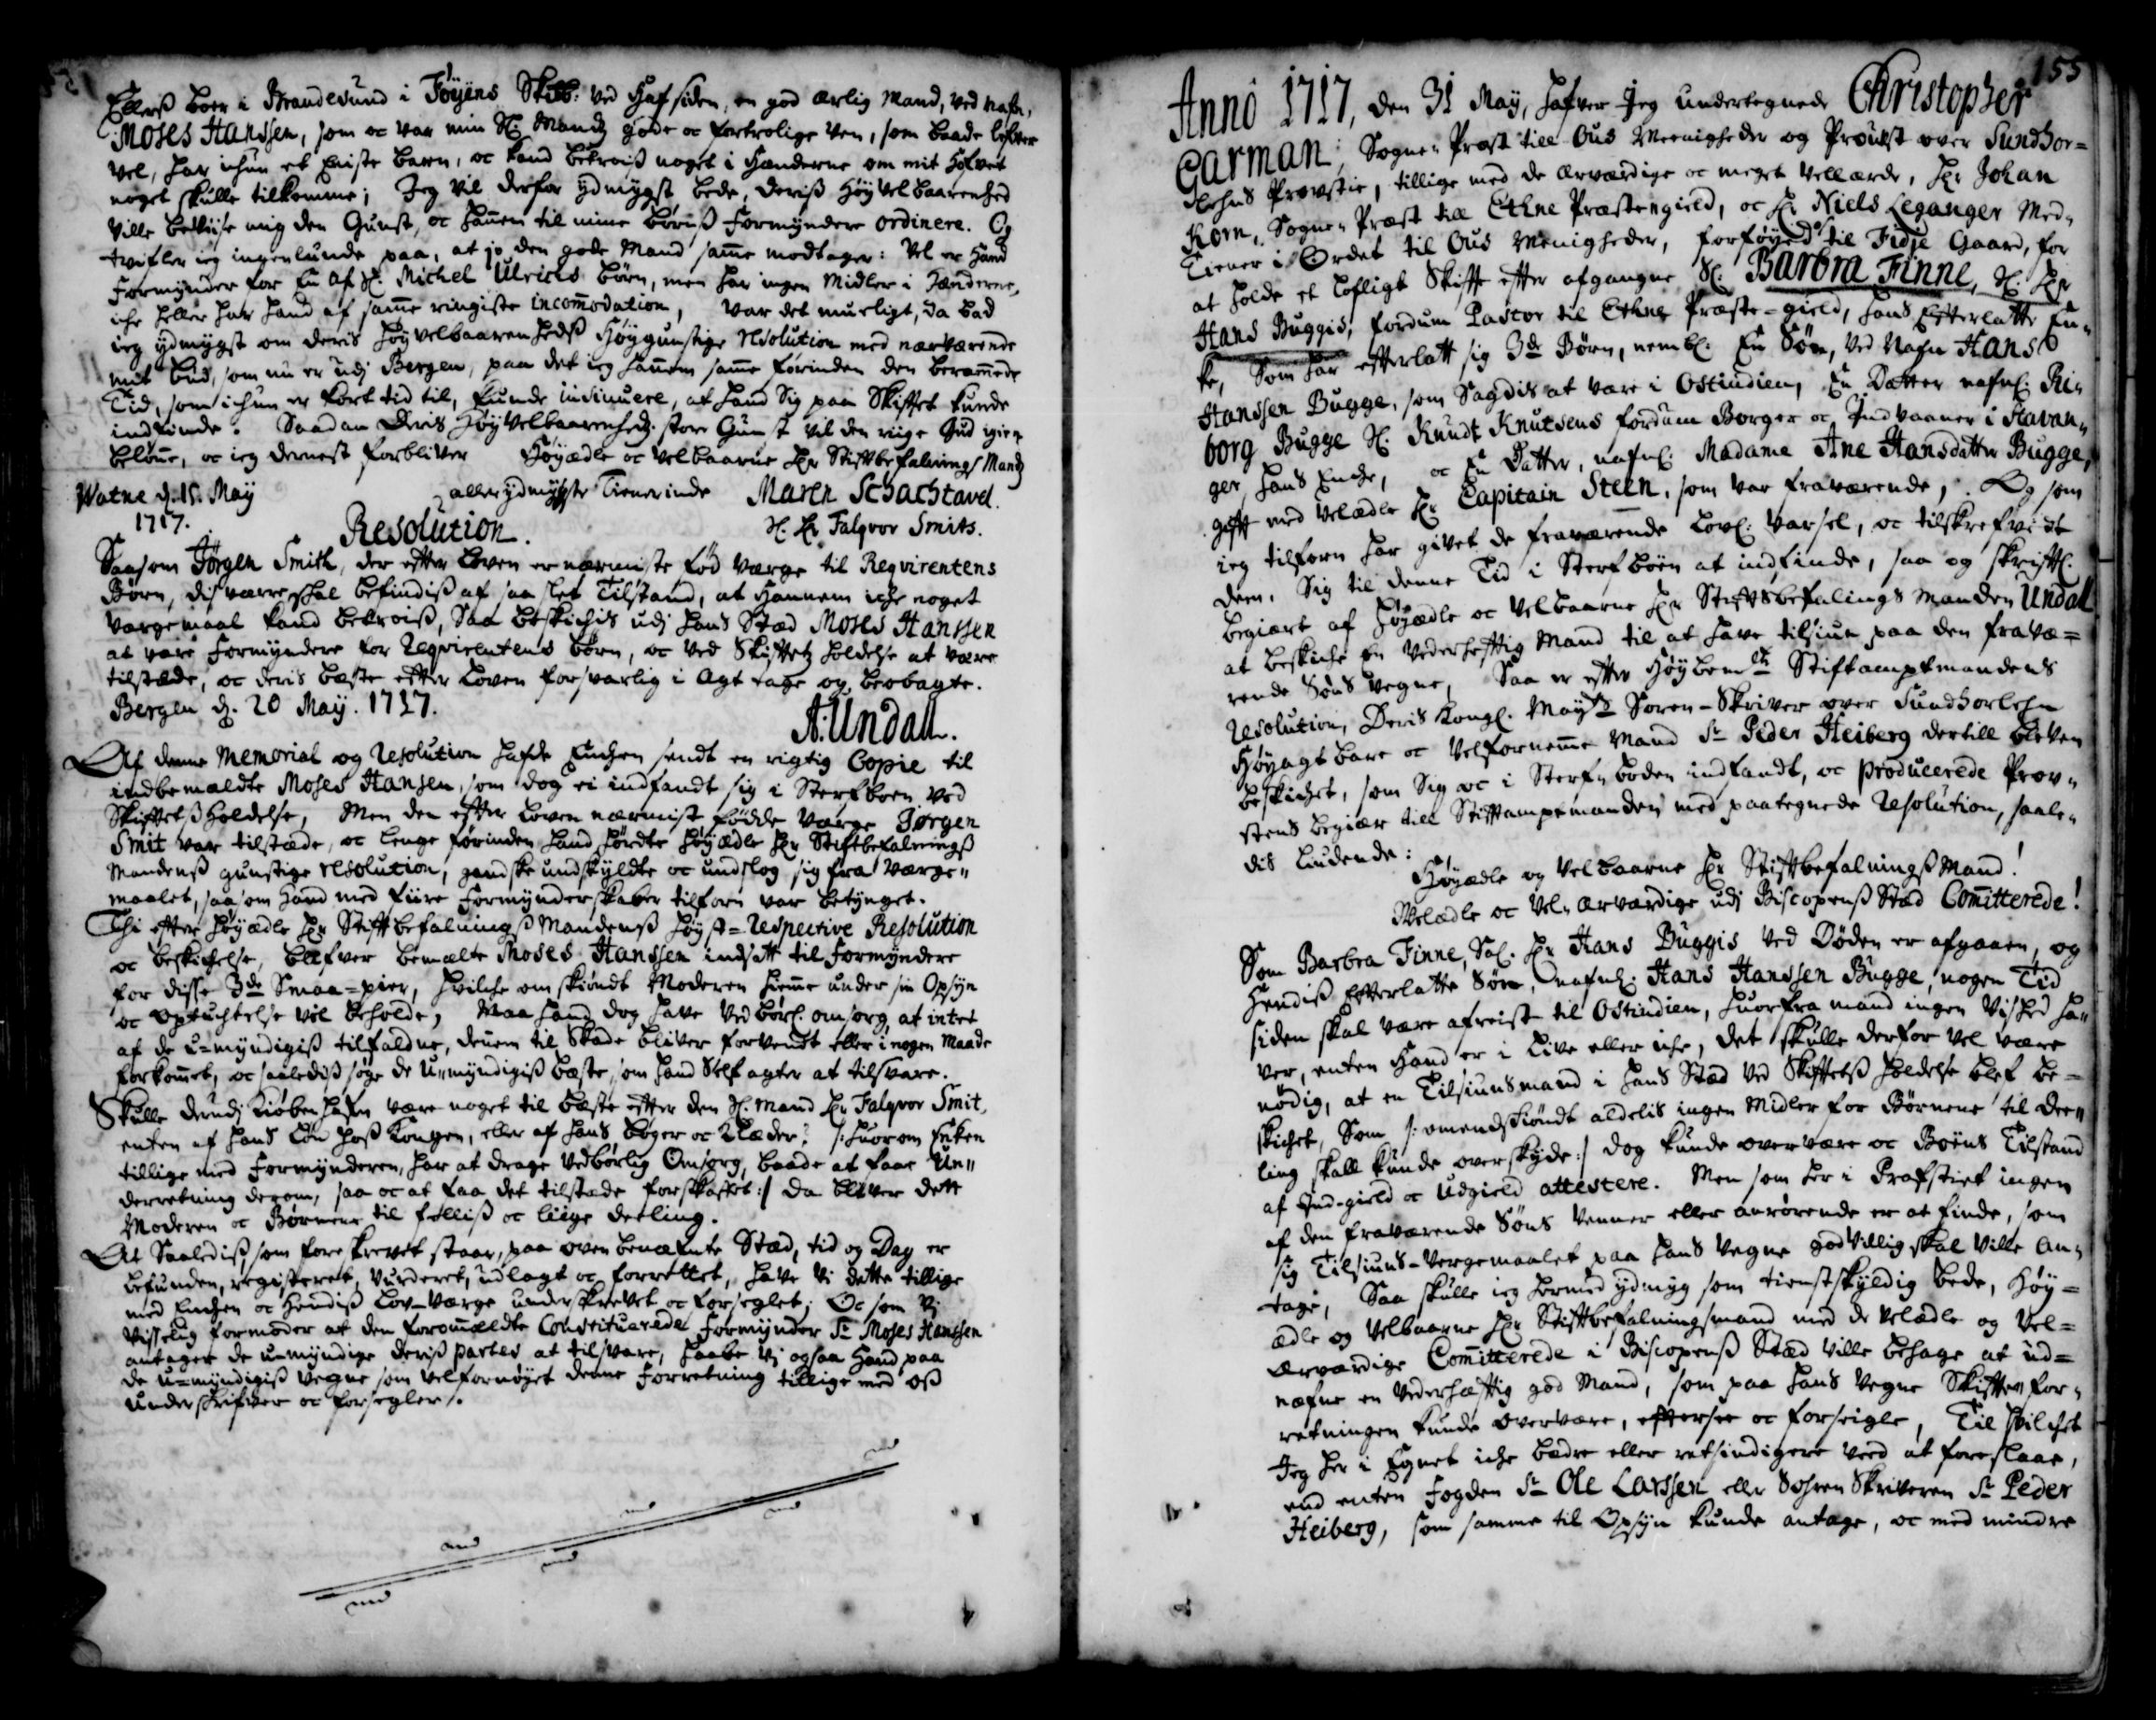 Ellers boer i Brandesund i Föyens Skibb: ved Hafsiden, en god ærlig Mand, ved nafn,
Moses Hanssen, som oc var min Sl: Mandz gode oc fortrolige Ven, som baade lefver
vel, har ichun et eniste barn, oc kand betrois noget i Hænderne om mit Hosveit
noget skulle tilkomme; Jeg vil derfor ydmygst bede, deriss Høyvelbaarenhed
ville bevise mig den Gunst, oc hannem til mine börnss Formyndere ordinere. Og
tvifler ieg ingenlunde paa, at jo den gode Mand samme modtager: Vel er Hand
Formynder for En af Sl: Michel Ulrichs börn, men har ingen Midler i Hænderne,
iche heller har hand af samme ringiste incommodation, var det mueligt, da bad
ieg ydmygst om deris Höyvelbaarenhedss Höygunstige resolution med nærværende
mit bud, som nu er udj Bergen, paa det ieg hannem samme förinden den berammede
Tid, som ichun er kort tid til, kunde insinuere, at hand Sig paa Skiftet kunde
indfinde. Saadan Deris Höyvelbaarenhedz store Gunst vil den riige Gud igien
belönne, oc ieg dernest forbliver Höyædle oc Velbaarne Hr Stiftbefalnings Mandz
Watne d. 15. May allerydmygste Tienerinde Maren Schachtavel.
1717. Sl: Hr Falqvor Smits.
Resolution.
Saasom Jörgen Smith, der efter Loven er nærmiste född Værge til Reqvirentens
Börn, disværre skal befindiss af saa slet Tilstand, at Hannem iche noget
værgemaal kand betroiss, Saa beskichis udj hans Stæd Moses Hanssen
at være Formyndere for Reqvirentens börn, oc ved Skiftetz holdelse at være
tilstæde, oc deris bæste efter Loven forsvarlig i Agt tage og beobagte.
Bergen d. 20 May. 1717.
A: Undall.
Af denne Memorial og Resolution hafde Enchen sendt en rigtig Copie til
indbemældte Moses Hansen, som dog ei indfandt sig i Sterfboen ved
Skiftetss Holdelse, Men den efter Loven nærmist födde Værge Jørgen
Smit var tilstæde, oc lenge förinden hand hördte Höyædle Hr Stiftbefalningss
Mandenss gunstige resolution, gandske undskyldte oc undslog sig fra Værge„
maalet, saasom Hand med fiire Formynderskaber tilforn var betynget.
Thi efter Höyædle Hr Stiftbefalningss Mandenss Höyst=respective Resolution
oc beskichelse, blefver bemælte Moses Hanssen indsatt til Formyndere
for disse 3de Smaa=pier, hvilche omskiöndt Moderen hiemme under sin Opsyn
oc optuchtelse vil beholde, Maa hand dog have vedbörl: omsorg, at intet
af de u=myndigiss tilfaldne, dennem til Skade bliver forvendt eller i nogen Maade
forkommet, oc saaledis söge de u=myndigiss bæste, som hand Self agter at tilsvare.
Skulle derudj Kiøbenhafn være noget til bæste efter den Sl: Mand Hr Falqvor Smit,
enten af hans Lön hoss Kongen, eller af hans böger oc Klæder? /: huorom Enken
tillige med Formynderen, har at drage vedbörlig Omsorg, baade at faae Un„
derretning derom, saa oc at faa det tilstæde forskaffet :/ da bliver dette
Moderen oc Börnene til fælliss oc liige deeling.
At Saalediss, som foreskrevet staar, paa ovenbenæfnte Stæd, tid og Dag er
befunden, registeret, vurderet, udlagt oc forrettet, have Vi dette tillige
med Enchen oc Hendiss Lov-Værge underskrevet oc forseglet; Oc som Vj
Visselig formoder at den forommældte Constituerede Formynder Sr Moses Hanssen
antager de u=myndige deriss partes at tilsvare, haabe Vj ogsaa Hand paa
de u=myndigiss vegne som velfornöyet denne Forretning tillige med oss
underskrifver oc forsegler /.
155
Anno 1717, den 31 May, hafver Jeg undertegnede Christopher
Garman, Sogne„Præst till Ous Meenigheder og Proust over Sundhor=
lehns Provstie, tillige med de Ærværdige oc meget Vellærde, Hr Johan
Korn, Sogne„Præst til Ethne Præstegield, oc Hr Niels Leganger Med„
Tiener i Ordet til Ous Menigheder, forföyed til Fidje Gaard, for
at holde et Lofligt Skifte efter afgangne Sl: Barbra Finne, Sl: Hr
Hans Buggis, fordum Pastor til Ethne Præste=gield, hans Efterlatte En„
ke, Som har efterlatt sig 3de Börn, nembl: En Sön, ved Nafn Hans
Hanssen Bugge, som Sagdis at være i Ostindien, En Datter nafnl: Ri„
borg Bugge Sl: Knudt Knutsens fordum Borger oc Indvaaner i Stavan„
ger, hans Enche, oc En Datter, nafnl: Madame Ane Hansdatter Bugge,
gift med Velædle Hr Capitain Steen, som var fraværende, Og som
ieg tilforn har givet de fraværende Lovl: Varsel, oc tilskrefvidt
dem, Sig til denne Tid i Sterfboen at indfinde, saa og skriftl:
begiært af Höyædle oc Velbaarne Hr Stiftsbefalings Manden Undall
at beskiche En Vederheftig Mand til at have tilsiun paa den fravæ=
rende Söns vegne, Saa er efter Höybemte Stiftamptmandens
Resolution, Deris Kongl: Mayts Soren-Skriver over Sundhorlehn
Höyagtbare oc Velfornemme Mand Sr Peder Heiberg dertill bleven
beskichet, som Sig oc i Sterf„boden indfandt, oc producerede Prov„
stens begiær till Stiftampmanden med paategnede Resolution, saale„
dis Liudende:
Höyædle og Velbaarne Hr Stiftbefalningss Mand!
Velædle oc Vel„ærværdige udj Biscopenss Stæd Committerede!
Som Barbra Finne, Sal: Hr Hans Buggis ved Döden er afgaaen, og
Hendiss Efterlatte Sön, nafnl: Hans Hanssen Bugge, nogen Tid
siden skal være afreist til Ostindien, huorfra mand ingen Vished ha„
ver, enten Hand er i Live eller iche, det skulle derfor vel være
nödig, at en Tilsiunsmand i hans Stæd ved Skiftetss holdelse blef be=
skichet, Som /: omendskiöndt aldelis ingen Midler for Börnene til dee„
ling skall kunde overskyde :/ dog kunde overvære oc Boens Tilstand
af Ind-gield oc Udgield attestere. Men som her i Præfstiet ingen
af den fraværende Söns Venner eller anrörende er at finde, som
sig Tilsiuns-Vergemaalet paa hans Vegne godvillig skal ville An„
tage, Saa skulle ieg hermed ydmyg som tienstskyldig bede, Höy=
ædle og Velbaarne Hr Stiftbefalningsmand med de Velædle og Vel=
Ærværdige Committerede i Biscopenss Stæd ville behage at ud=
næfne en Vederhæftig god Mand, som paa hans Vegne Skifte„for„
retningen kunde overvære, eftersee oc forseigle, Til hvilchet
Jeg her i Egnet iche bædre eller retsindigere veed at foreslaae,
end enten Fogden Sr Ole Larssen eller Sohren Skriveren Sr Peder
Heiberg, som samme til Opsyn kunde antage, oc med mindre